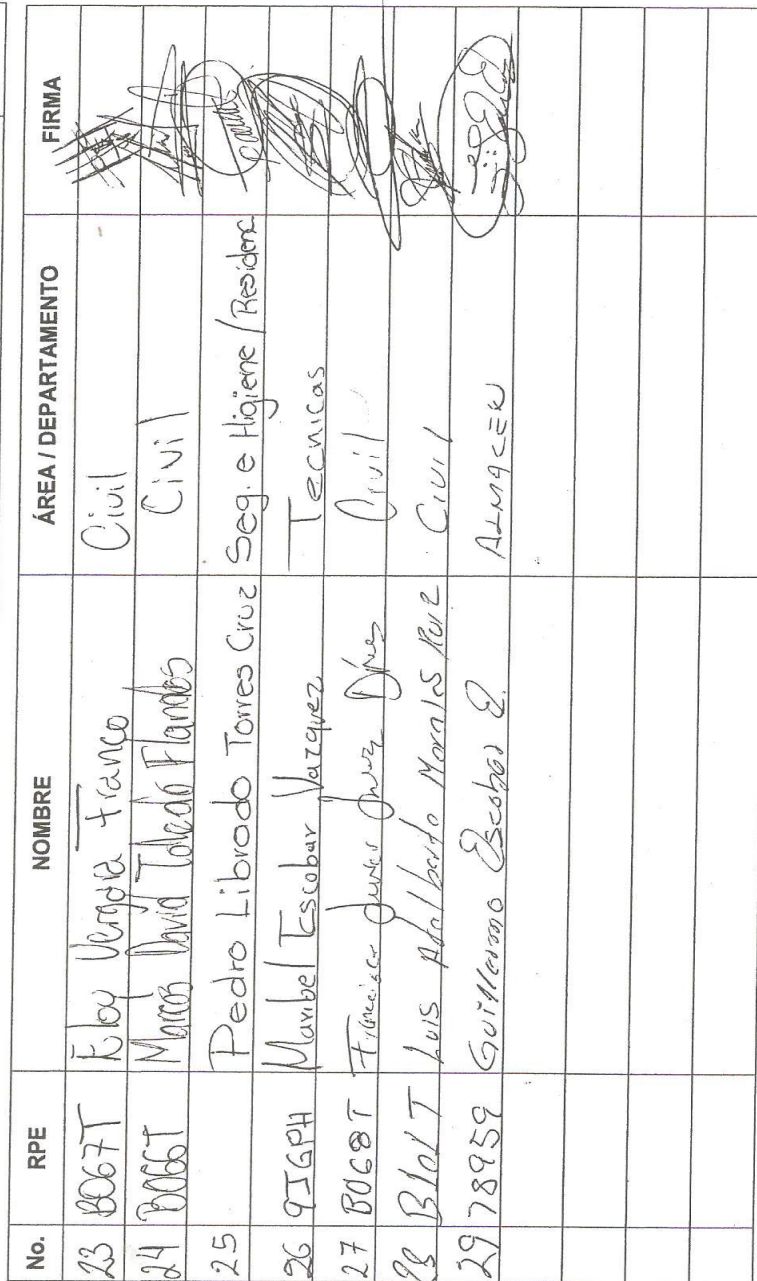 No. RPE NOMBRE ÁREA / DEPARTAMENTO FIRMA
23 B067T Eloy Vergara Franco Civil
24 B066T Marcos David Toledo Flandes Civil
25 Pedro Librado Torres Cruz Seg. e Higiene / Residenc
26 9JGPH Maribel Escobar Vazquez Tecnicas
27 B068T Francisco Civil
28 B101T Luis Adalberto Morales Ruiz Civil
29 78959 Guillermo Escobar E. ALMACEN